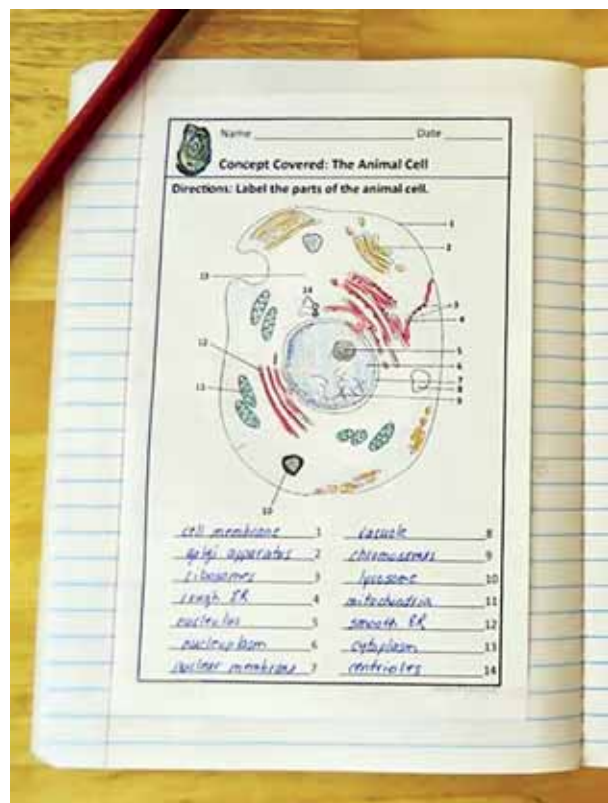 Name ____________________ Date ________
Concept Covered: The Animal Cell
Directions: Label the parts of the animal cell.
1
2
13
14
3
4
12
5
6
7
11
8
9
10
cell membrane 1
golgi apparatus 2
ribosomes 3
rough ER 4
nucleolus 5
nucleoplasm 6
nuclear membrane 7
vacuole 8
chromosomes 9
lysosome 10
mitochondria 11
smooth ER 12
cytoplasm 13
centrioles 14